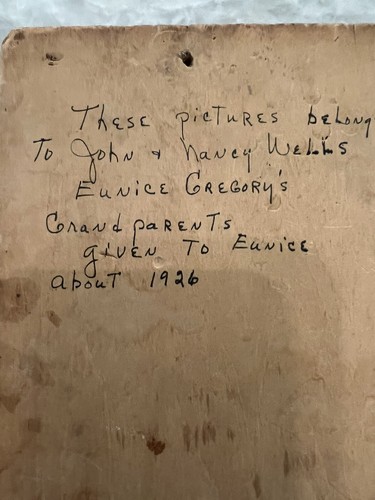 These pictures belong
To John & Nancy Wells
Eunice Gregory's
Grandparents
given To Eunice
about 1926